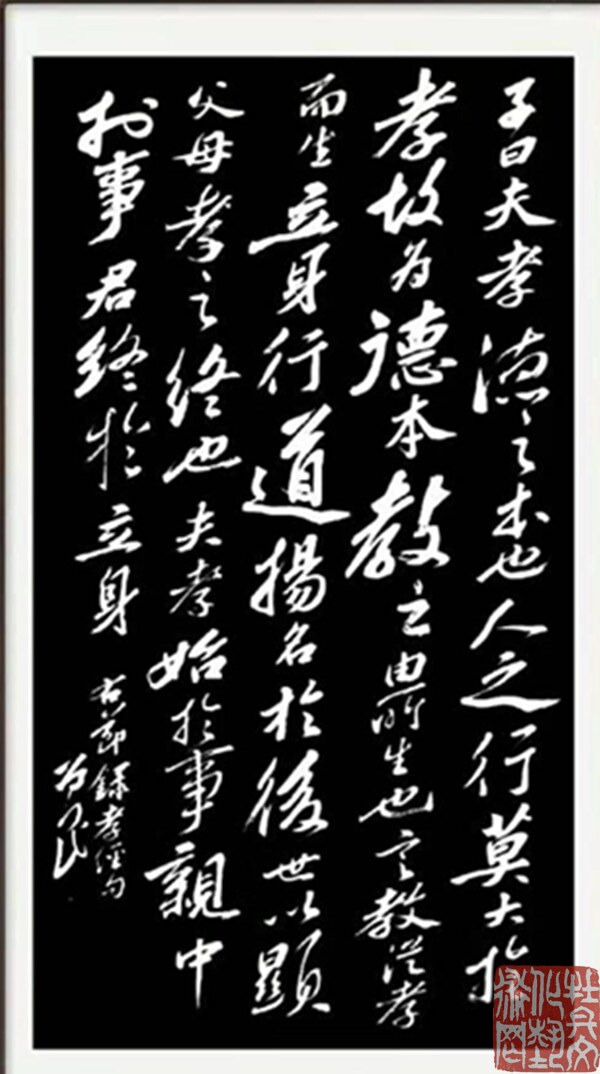 子曰夫孝德之本也人之行莫大於
孝故为德本教之由所生也言教從孝
而生立身行道揚名於後世以顯
父母孝之终也夫孝始於事親中
於事君終於立身
右節錄孝經句
牡丹文化藝術网